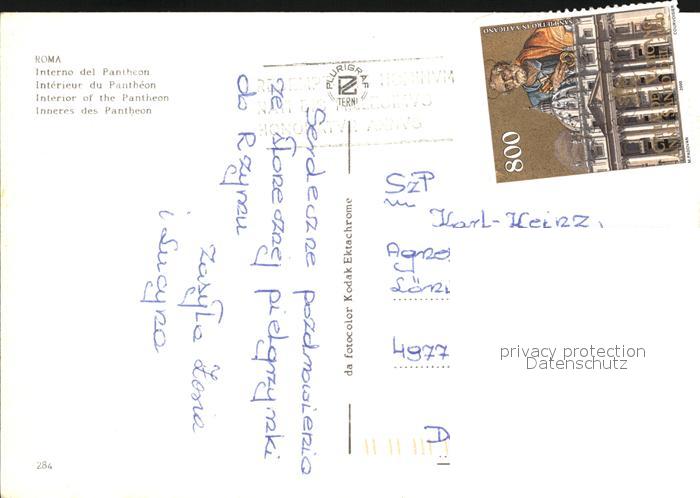 ROMA
Interno del Pantheon
Intérieur du Panthéon
Interior of the Pantheon
Inneres des Pantheon
PLURIGRAF
TERNI
SAN PIETRO IN VATICANO
800
Serdeczne pozdrowienia
ze Słonecznej pielgrzymki
do Rzymu
Zasyła Zosia
i Lucyna
da fotocolor Kodak Ektachrome
SzP
Karl-Heinz
4977
A
privacy protection
Datenschutz
284